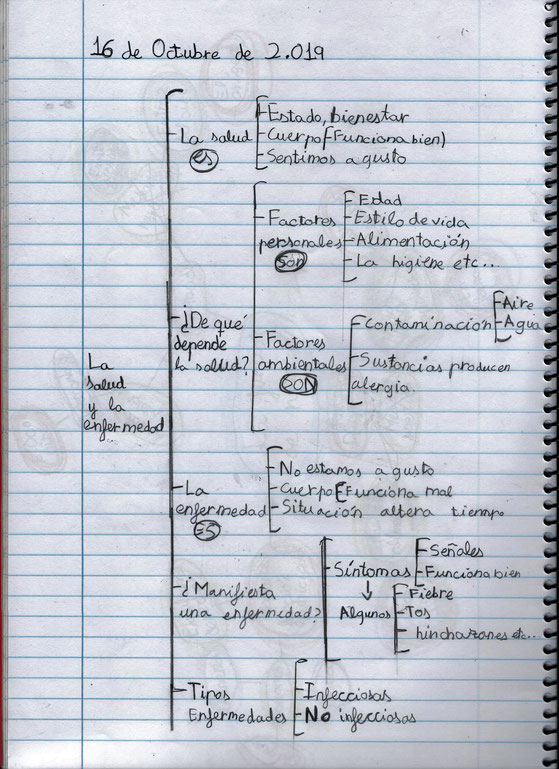 16 de Octubre de 2.019
La
salud
y la
enfermedad
La salud
es
Estado, bienestar
Cuerpo [Funciona bien)
Sentimos a gusto
¿De qué
depende
la salud?
Factores
personales
son
Edad
Estilo de vida
Alimentación
La higiene etc...
Factores
ambientales
SON
Contaminación
Aire
Agua
Sustancias producen
alergia.
La
enfermedad
ES
No estamos a gusto
Cuerpo [Funciona mal
Situación altera tiempo
¿Manifiesta
una enfermedad?
Síntomas
Señales
Funciona bien
Algunos
Fiebre
Tos
hinchazones etc...
Tipos
Enfermedades
Infecciosas
No infecciosas